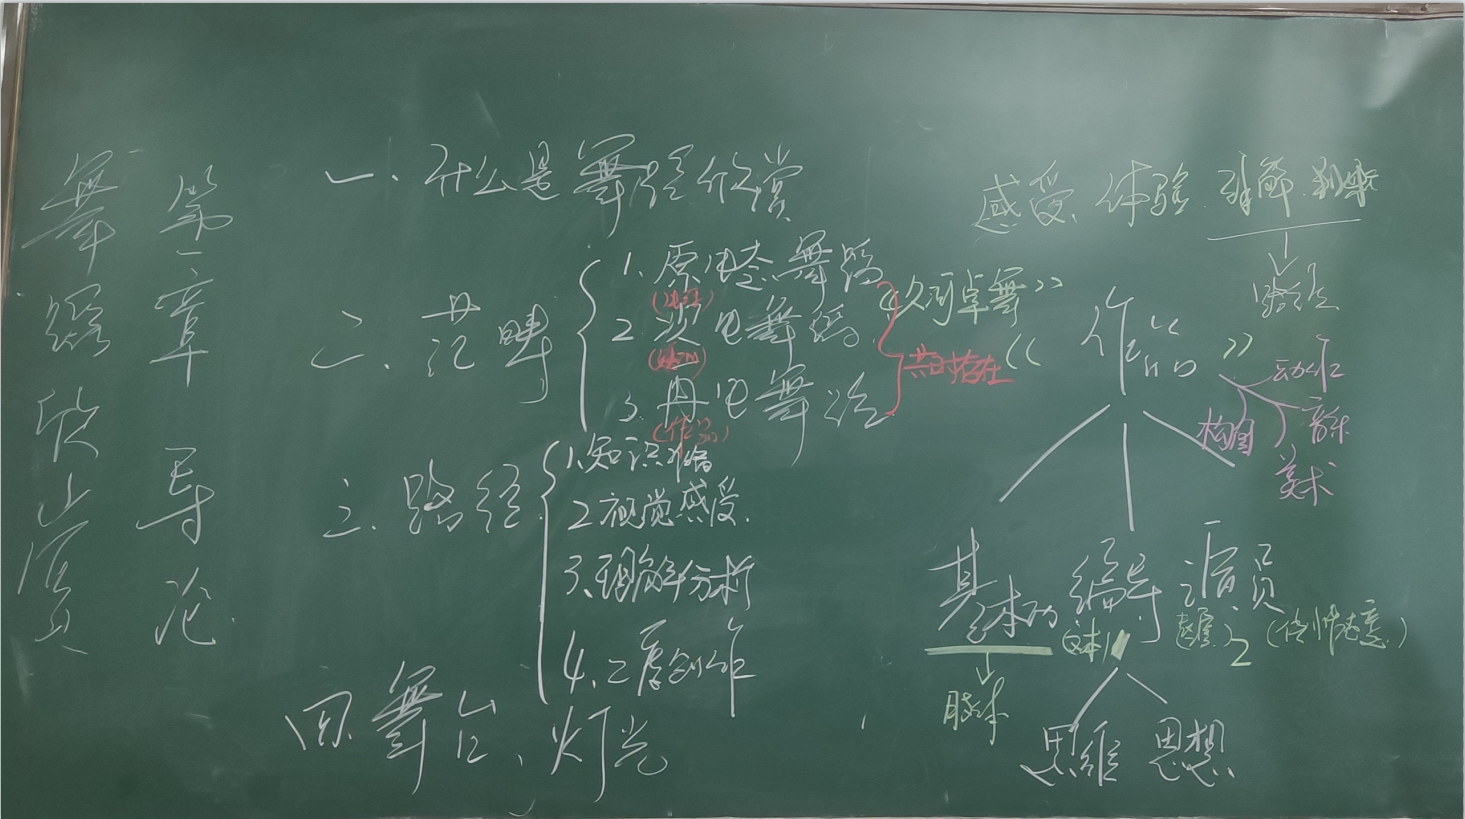 舞蹈欣赏
第一章 导论
一、什么是舞蹈欣赏
二、范畴
1、原生态舞蹈
2、次生舞蹈
3、再生舞蹈
(作品)
共时存在
三、路径
1、知识准备
2、视觉感受
3、理解分析
4、二度创作
四、舞台、灯光
感受、体验、理解、判断
《作品》
动作
音乐
构图
美术
基本功 编导 演员
(文本)1
2
脚本
思维 思想